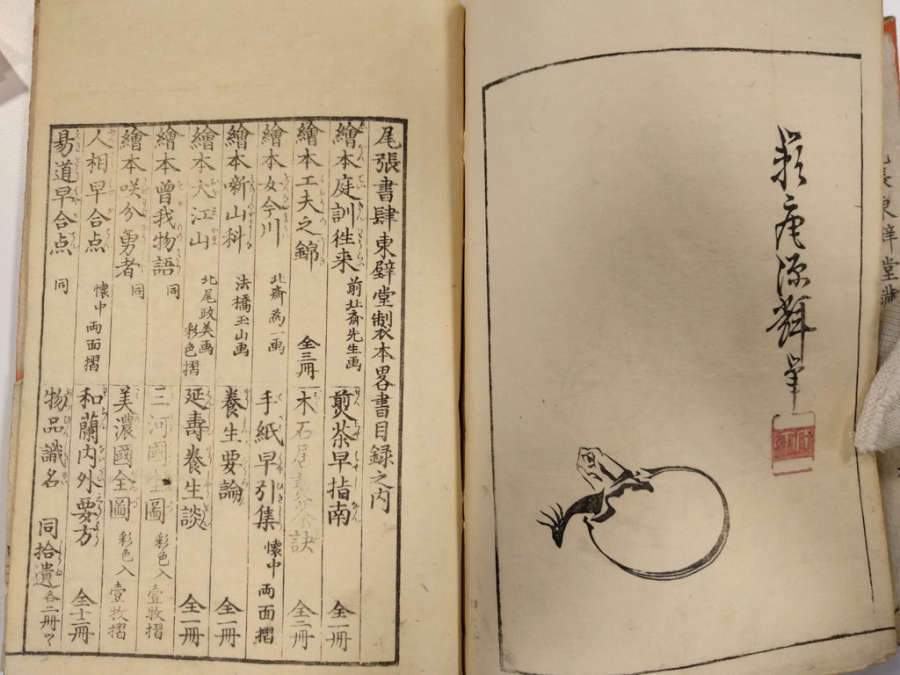 源輝筆
東壁堂
尾張書肆東壁堂製本畧書目録之内
繪本庭訓徃来 前北斎先生画
繪本工夫之錦 全三冊
繪本女今川 北斎為一画
繪本噺山科 法橋玉山画
繪本大江山 北尾政美画 彩色摺
繪本曽我物語 同
繪本咲分勇者 同
人相早合点 懐中両面摺
易道早合点 同
煎茶早指南 全一冊
木石居煎茶訣 全二冊
手紙早引集 懐中両面摺
養生要論 全一冊
延壽養生談 全一冊
三河國全圖 彩色入壹牧摺
美濃國全圖 彩色入壹牧摺
和蘭内外要方 全十二冊
物品識名 同拾遺 各二冊ツヽ